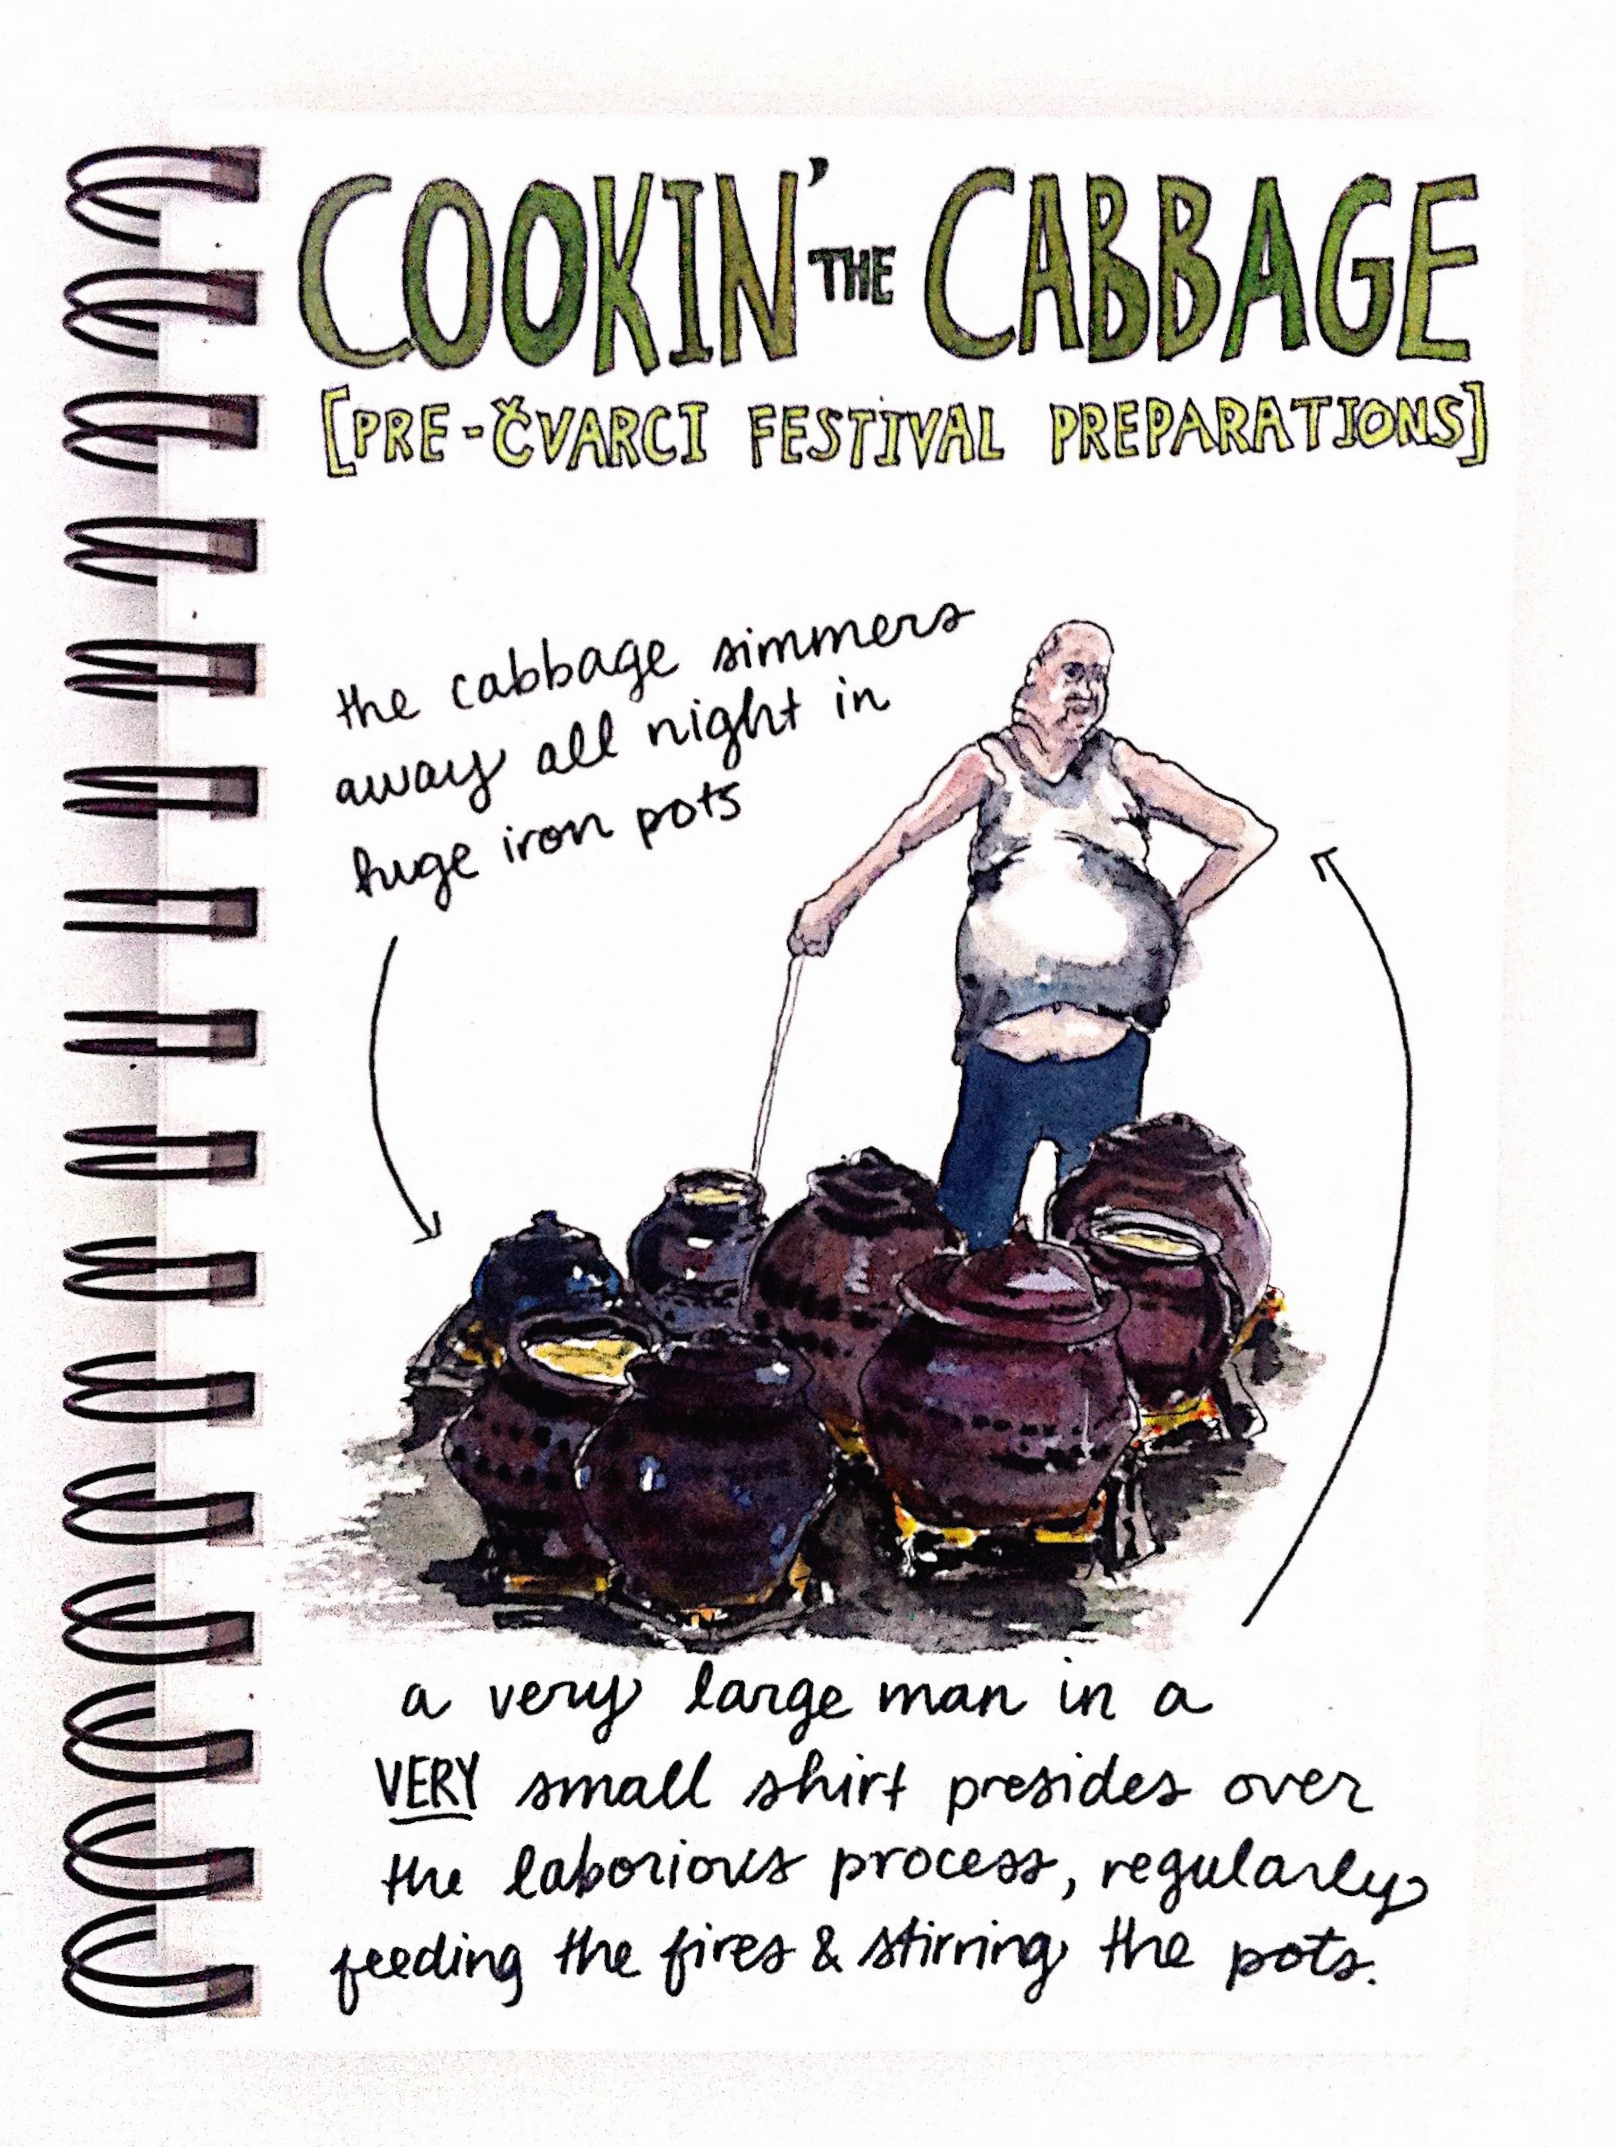 COOKIN' THE CABBAGE
[PRE-ČVARCI FESTIVAL PREPARATIONS]
the cabbage simmers
away all night in
huge iron pots
a very large man in a
VERY small shirt presides over
the laborious process, regularly
feeding the fires & stirring the pots.